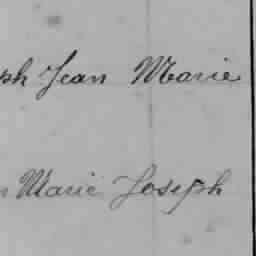 ph Jean Marie
Marie Joseph